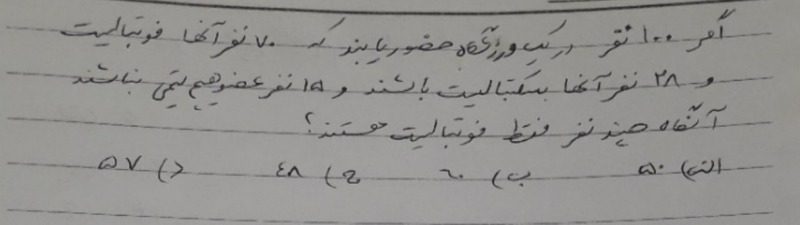 اگر ۱۰۰ نفر در یک ورزشگاه حضور یابند که ۷۰ نفر آنها فوتبالیست
و ۲۸ نفر آنها بسکتبالیست باشند و ۱۵ نفر عضو هیچ تیمی نباشند
آنگاه چند نفر فقط فوتبالیست هستند؟
الف) ۵۰ ب) ۶۰ ج) ۴۸ د) ۵۷